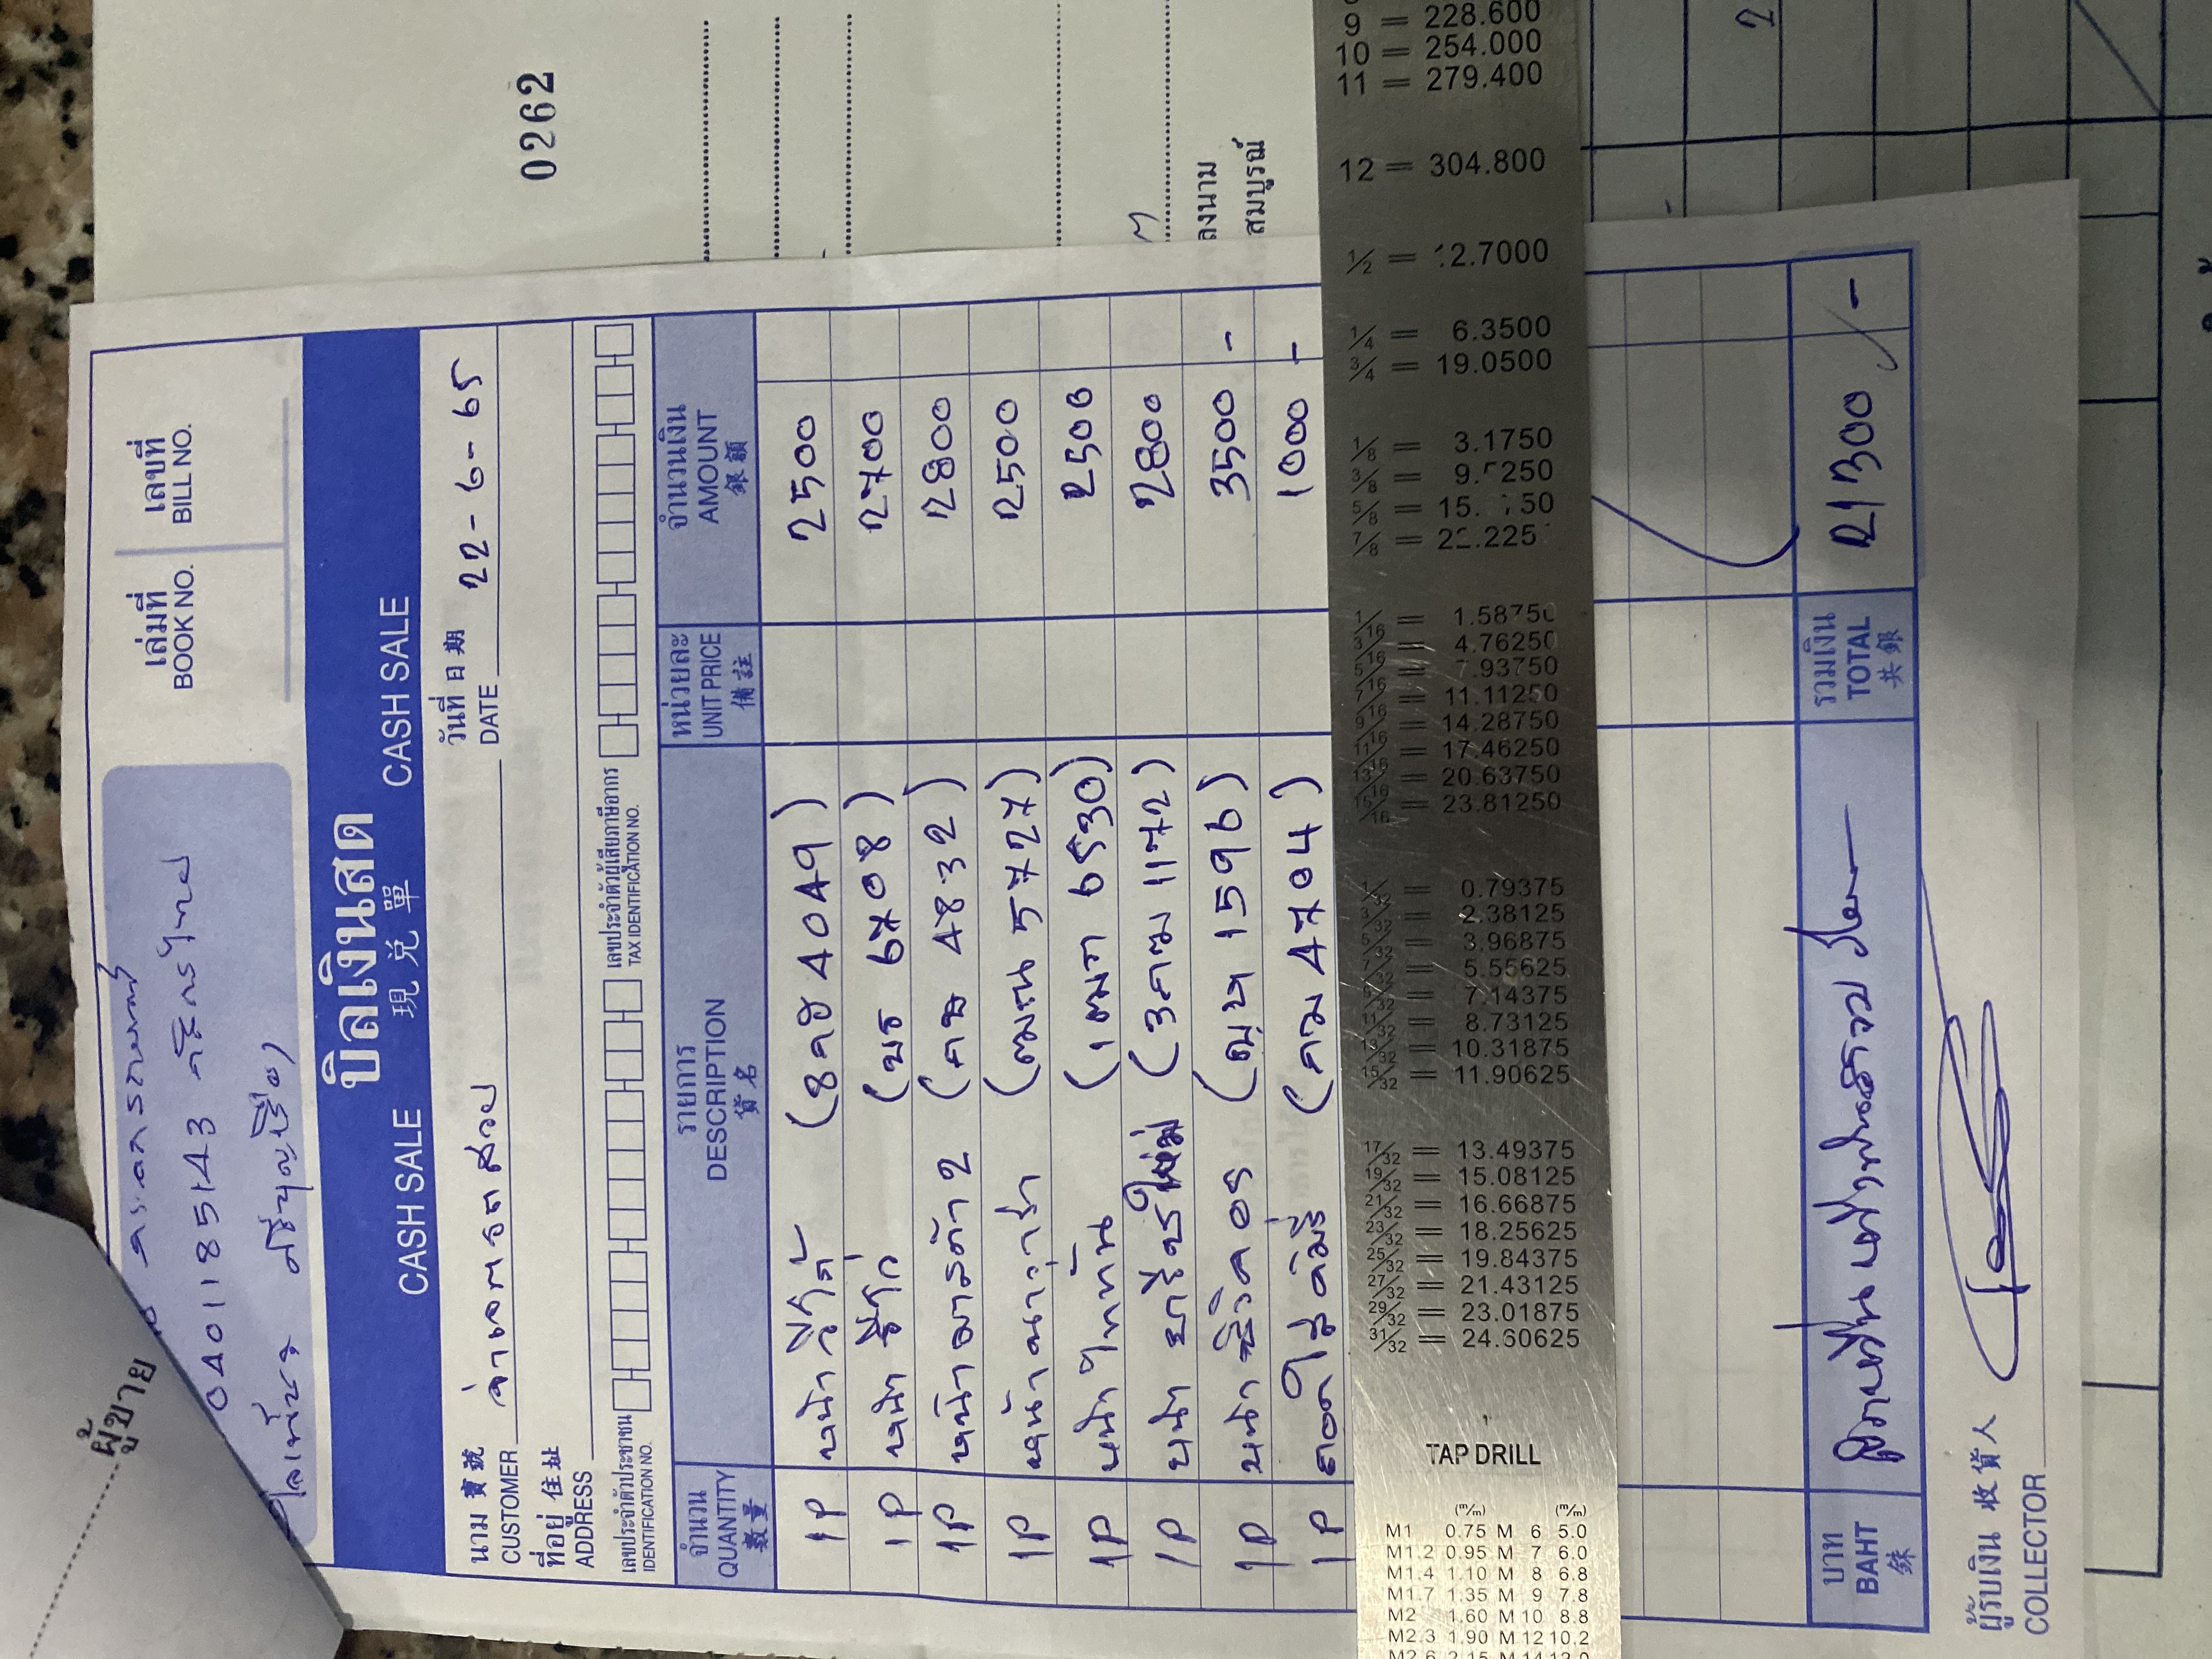 0401185143 กสิกรไทย
เล่มที่
BOOK NO.
เลขที่
BILL NO.
บิลเงินสด
CASH SALE 現兌單 CASH SALE
นาม 寶號
CUSTOMER
วันที่ 日期
DATE 22-6-65
ที่อยู่ 住址
ADDRESS
เลขประจำตัวประชาชน
IDENTIFICATION NO.
เลขประจำตัวผู้เสียภาษีอากร
TAX IDENTIFICATION NO.
จำนวน
QUANTITY
數量
รายการ
DESCRIPTION
貨名
หน่วยละ
UNIT PRICE
備註
จำนวนเงิน
AMOUNT
銀額
1P หน้า วีโก้ (8กช 4049) 2500
1P หน้า (บร 6708) 2700
1P หน้า มาสด้า 2 (กษ 4832) 2800
1P หน้า นาวาร่า (ฒน 5727) 2500
1P หน้า ไททัน (1ฒก 6530) 2500
1P หน้า ยาริส ใหม่ (3กฌ 1172) 2800
1P หน้า (ญน 1596) 3500 -
1P ถอดใส่ (กม 4704) 1000 -
บาท
BAHT
銖
สองหมื่นหนึ่งพันสามร้อย
รวมเงิน
TOTAL
共銀
21300 /-
ผู้รับเงิน 收貨人
COLLECTOR
ผู้ขาย
0262
ลงนาม
สมบูรณ์
9 = 228.600
10 = 254.000
11 = 279.400
12 = 304.800
1/2 = 12.7000
1/4 = 6.3500
3/4 = 19.0500
1/8 = 3.1750
3/8 = 9.5250
5/8 = 15. 50
7/8 = 22.225
1/16 = 1.58750
3/16 = 4.76250
5/16 = 7.93750
7/16 = 11.11250
9/16 = 14.28750
11/16 = 17.46250
13/16 = 20.63750
15/16 = 23.81250
1/32 = 0.79375
3/32 = 2.38125
5/32 = 3.96875
7/32 = 5.55625
9/32 = 7.14375
11/32 = 8.73125
13/32 = 10.31875
15/32 = 11.90625
17/32 = 13.49375
19/32 = 15.08125
21/32 = 16.66875
23/32 = 18.25625
25/32 = 19.84375
27/32 = 21.43125
29/32 = 23.01875
31/32 = 24.60625
TAP DRILL
(m/m) (m/m)
M1 0.75 M 6 5.0
M1.2 0.95 M 7 6.0
M1.4 1.10 M 8 6.8
M1.7 1.35 M 9 7.8
M2 1.60 M 10 8.8
M2.3 1.90 M 12 10.2